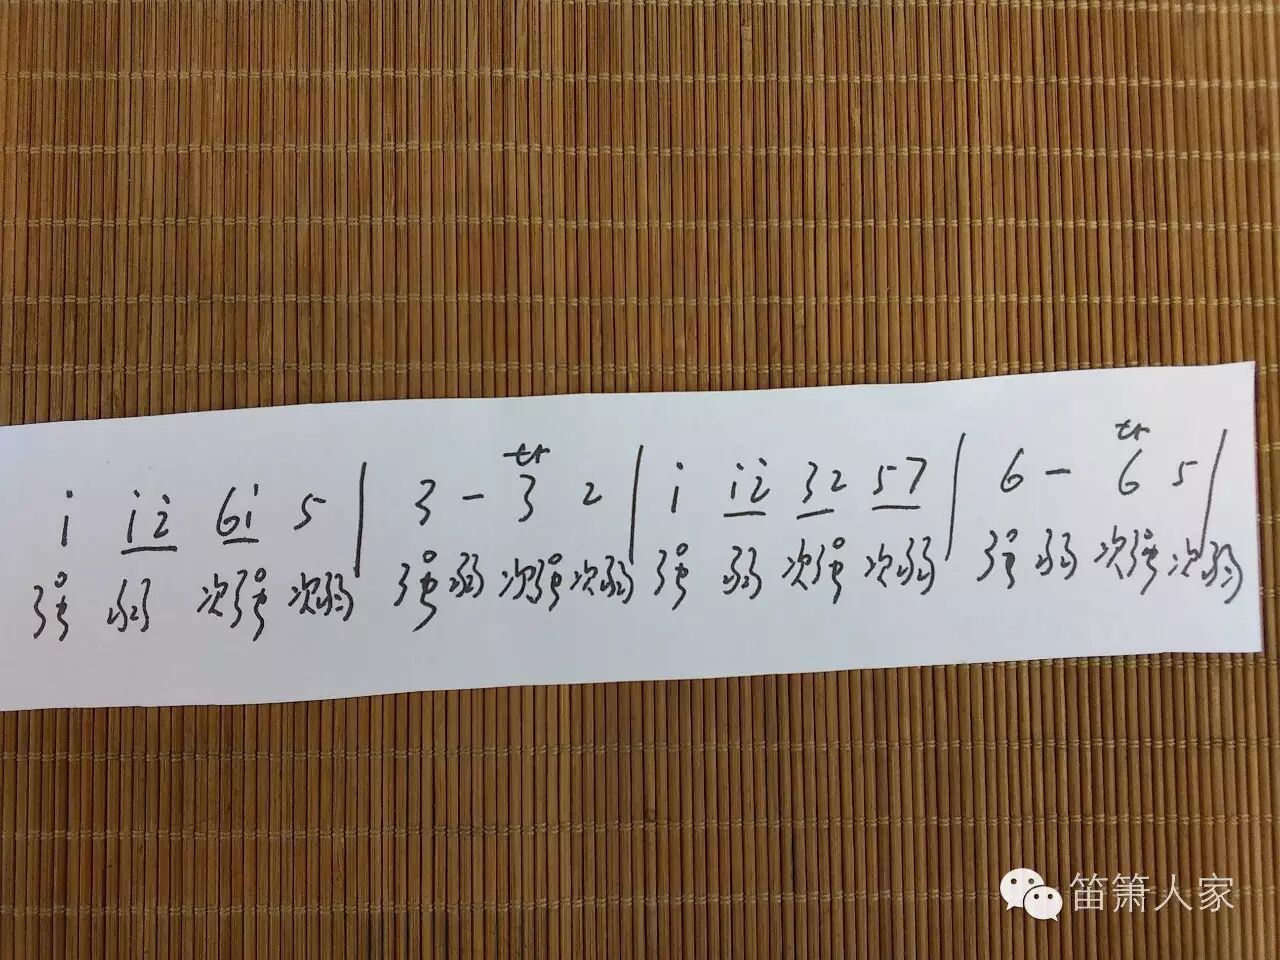 i i 2̇ 6 i 5 | 3 - tr 3 2 | i i 2̇ 3 2 5 7 | 6 - tr 6 5 |
强 弱 次强 次弱 强 弱 次强 次弱 强 弱 次强 次弱 强 弱 次强 次弱
笛箫人家